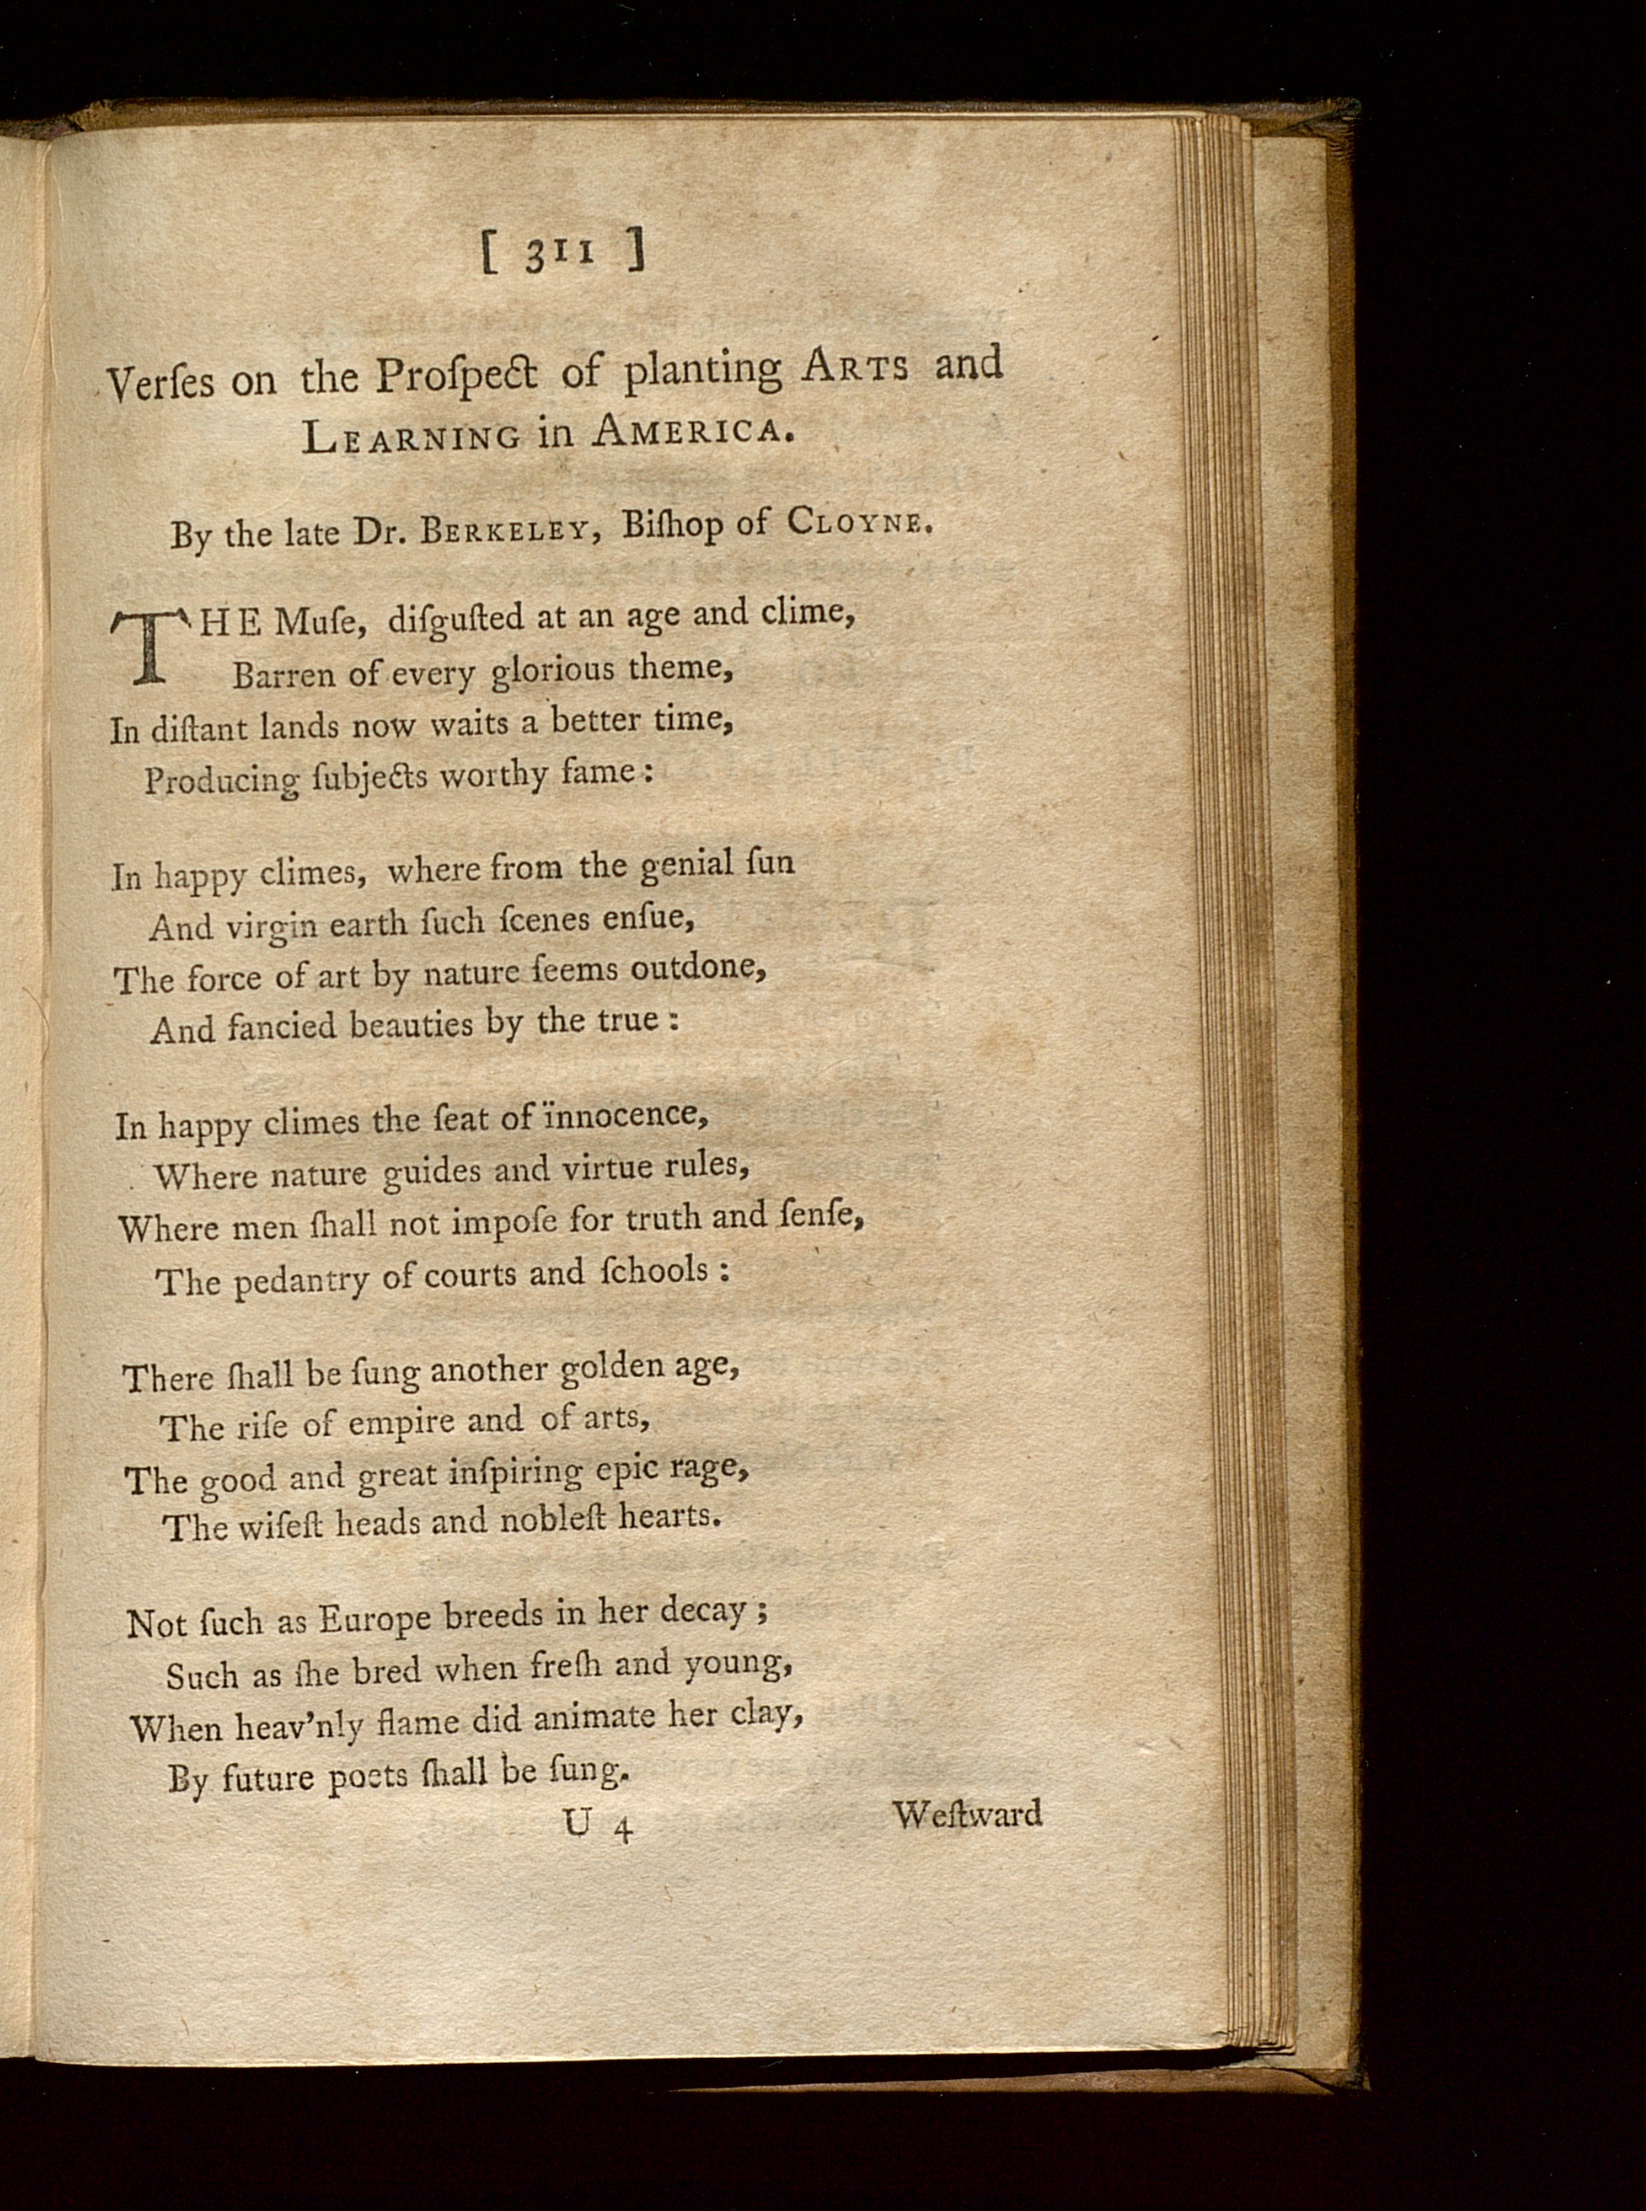 [ 311 ]
Verſes on the Proſpect of planting ARTS and
LEARNING in AMERICA.
By the late Dr. BERKELEY, Biſhop of CLOYNE.
THE Muſe, diſguſted at an age and clime,
Barren of every glorious theme,
In diſtant lands now waits a better time,
Producing ſubjects worthy fame :
In happy climes, where from the genial ſun
And virgin earth ſuch ſcenes enſue,
The force of art by nature ſeems outdone,
And fancied beauties by the true :
In happy climes the ſeat of ïnnocence,
Where nature guides and virtue rules,
Where men ſhall not impoſe for truth and ſenſe,
The pedantry of courts and ſchools :
There ſhall be ſung another golden age,
The riſe of empire and of arts,
The good and great inſpiring epic rage,
The wiſeſt heads and nobleſt hearts.
Not ſuch as Europe breeds in her decay ;
Such as ſhe bred when freſh and young,
When heav'nly flame did animate her clay,
By future poets ſhall be ſung.
U 4 Weſtward